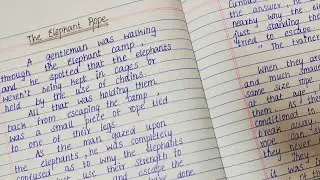 The Elephant Rope
A gentleman was walking
through the elephant camp,
and he spotted that the elephants
weren't being kept in cages or
held by the use of chains.
All that was holding them
back from escaping the camp, was
was a small piece of rope tied
to one of their legs.
As the man gazed upon
the elephants, he was completely
confused as to why the elephants
use their strength to
and escape the
have done.
the answer, he
nearby why the
just standing
tried to escape.
"The trainer
When they are
and much smaller
same size rope
at that age,
them. As they
conditioned to
break away.
can
they never
it.
They